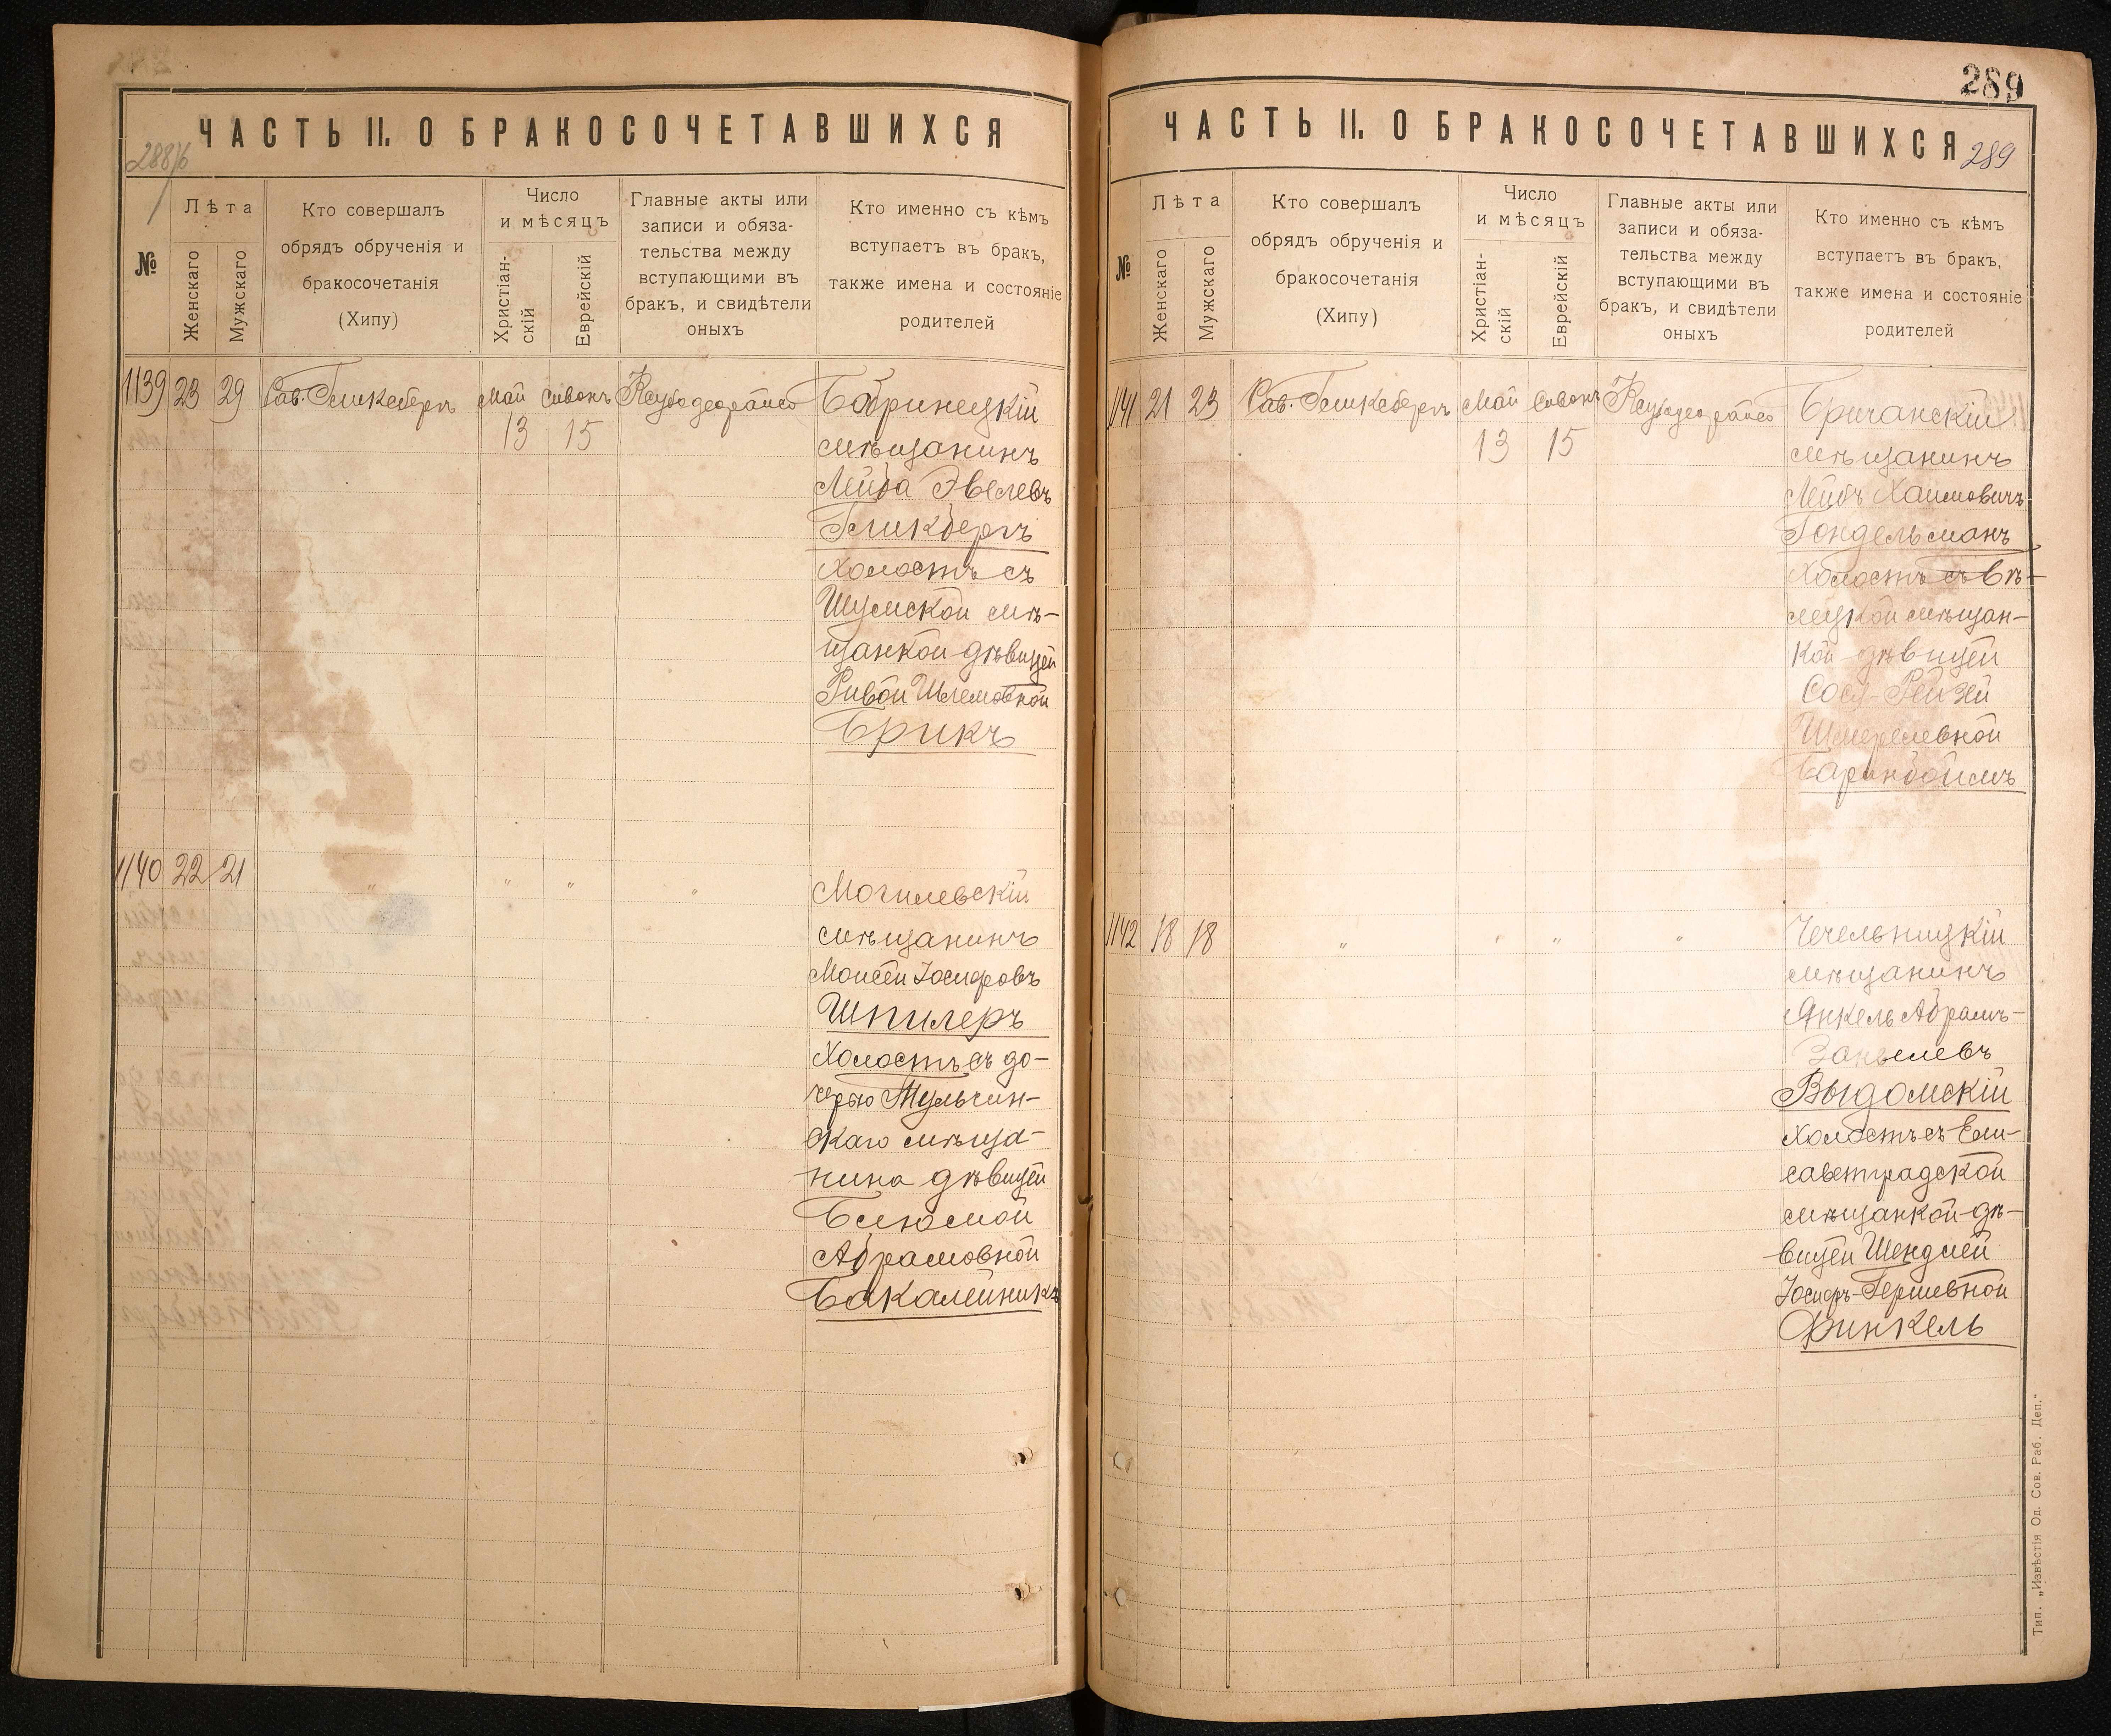 ЧАСТЬ II. О БРАКОСОЧЕТАВШИХСЯ
288/б
№
Лѣта
Женскаго
Мужскаго
Кто совершалъ
обрядъ обрученія и
бракосочетанія
(Хипу)
Число
и мѣсяцъ
Христіан-
скій
Еврейскій
Главные акты или
записи и обяза-
тельства между
вступающими въ
бракъ, и свидѣтели
оныхъ
Кто именно съ кѣмъ
вступаетъ въ бракъ,
также имена и состояніе
родителей
1139 23 29 Рав. Гликсбергъ Май Сивонъ Ксубодеорайсо Бобринецкій
13 15 мѣщанинъ
Лейба Эвелевъ
Гликбергъ
холостъ съ
Шумской мѣ-
щанкой дѣвицей
Ривой Шлемовной
Брикъ
1140 22 21 " " " " Могилевскій
мѣщанинъ
Моисей Іосифовъ
Шпилеръ
холостъ съ до-
черью Тульчин-
скаго мѣща-
нина дѣвицей
Блюмой
Абрамовной
Бакалейникъ
289
ЧАСТЬ II. О БРАКОСОЧЕТАВШИХСЯ
289
№
Лѣта
Женскаго
Мужскаго
Кто совершалъ
обрядъ обрученія и
бракосочетанія
(Хипу)
Число
и мѣсяцъ
Христіан-
скій
Еврейскій
Главные акты или
записи и обяза-
тельства между
вступающими въ
бракъ, и свидѣтели
оныхъ
Кто именно съ кѣмъ
вступаетъ въ бракъ,
также имена и состояніе
родителей
1141 21 23 Рав. Гликсбергъ Май Сивонъ Ксубодеорайсо Бричанскій
13 15 мѣщанинъ
Лейбъ Хаимовичъ
Гондельманъ
холостъ съ
мѣщан-
кой дѣвицей
Сося-Рейзей
Шмерелевной
Баринбоймъ
1142 18 18 " " " " Чечельницкій
мѣщанинъ
Янкель Абрамъ-
Зонвелевъ
Выдомскій
холостъ съ Ели-
саветградской
мѣщанкой дѣ-
вицей Шендлей
Іосифъ-Гершевной
Финкель
Тип. „Извѣстія Од. Сов. Раб. Деп."